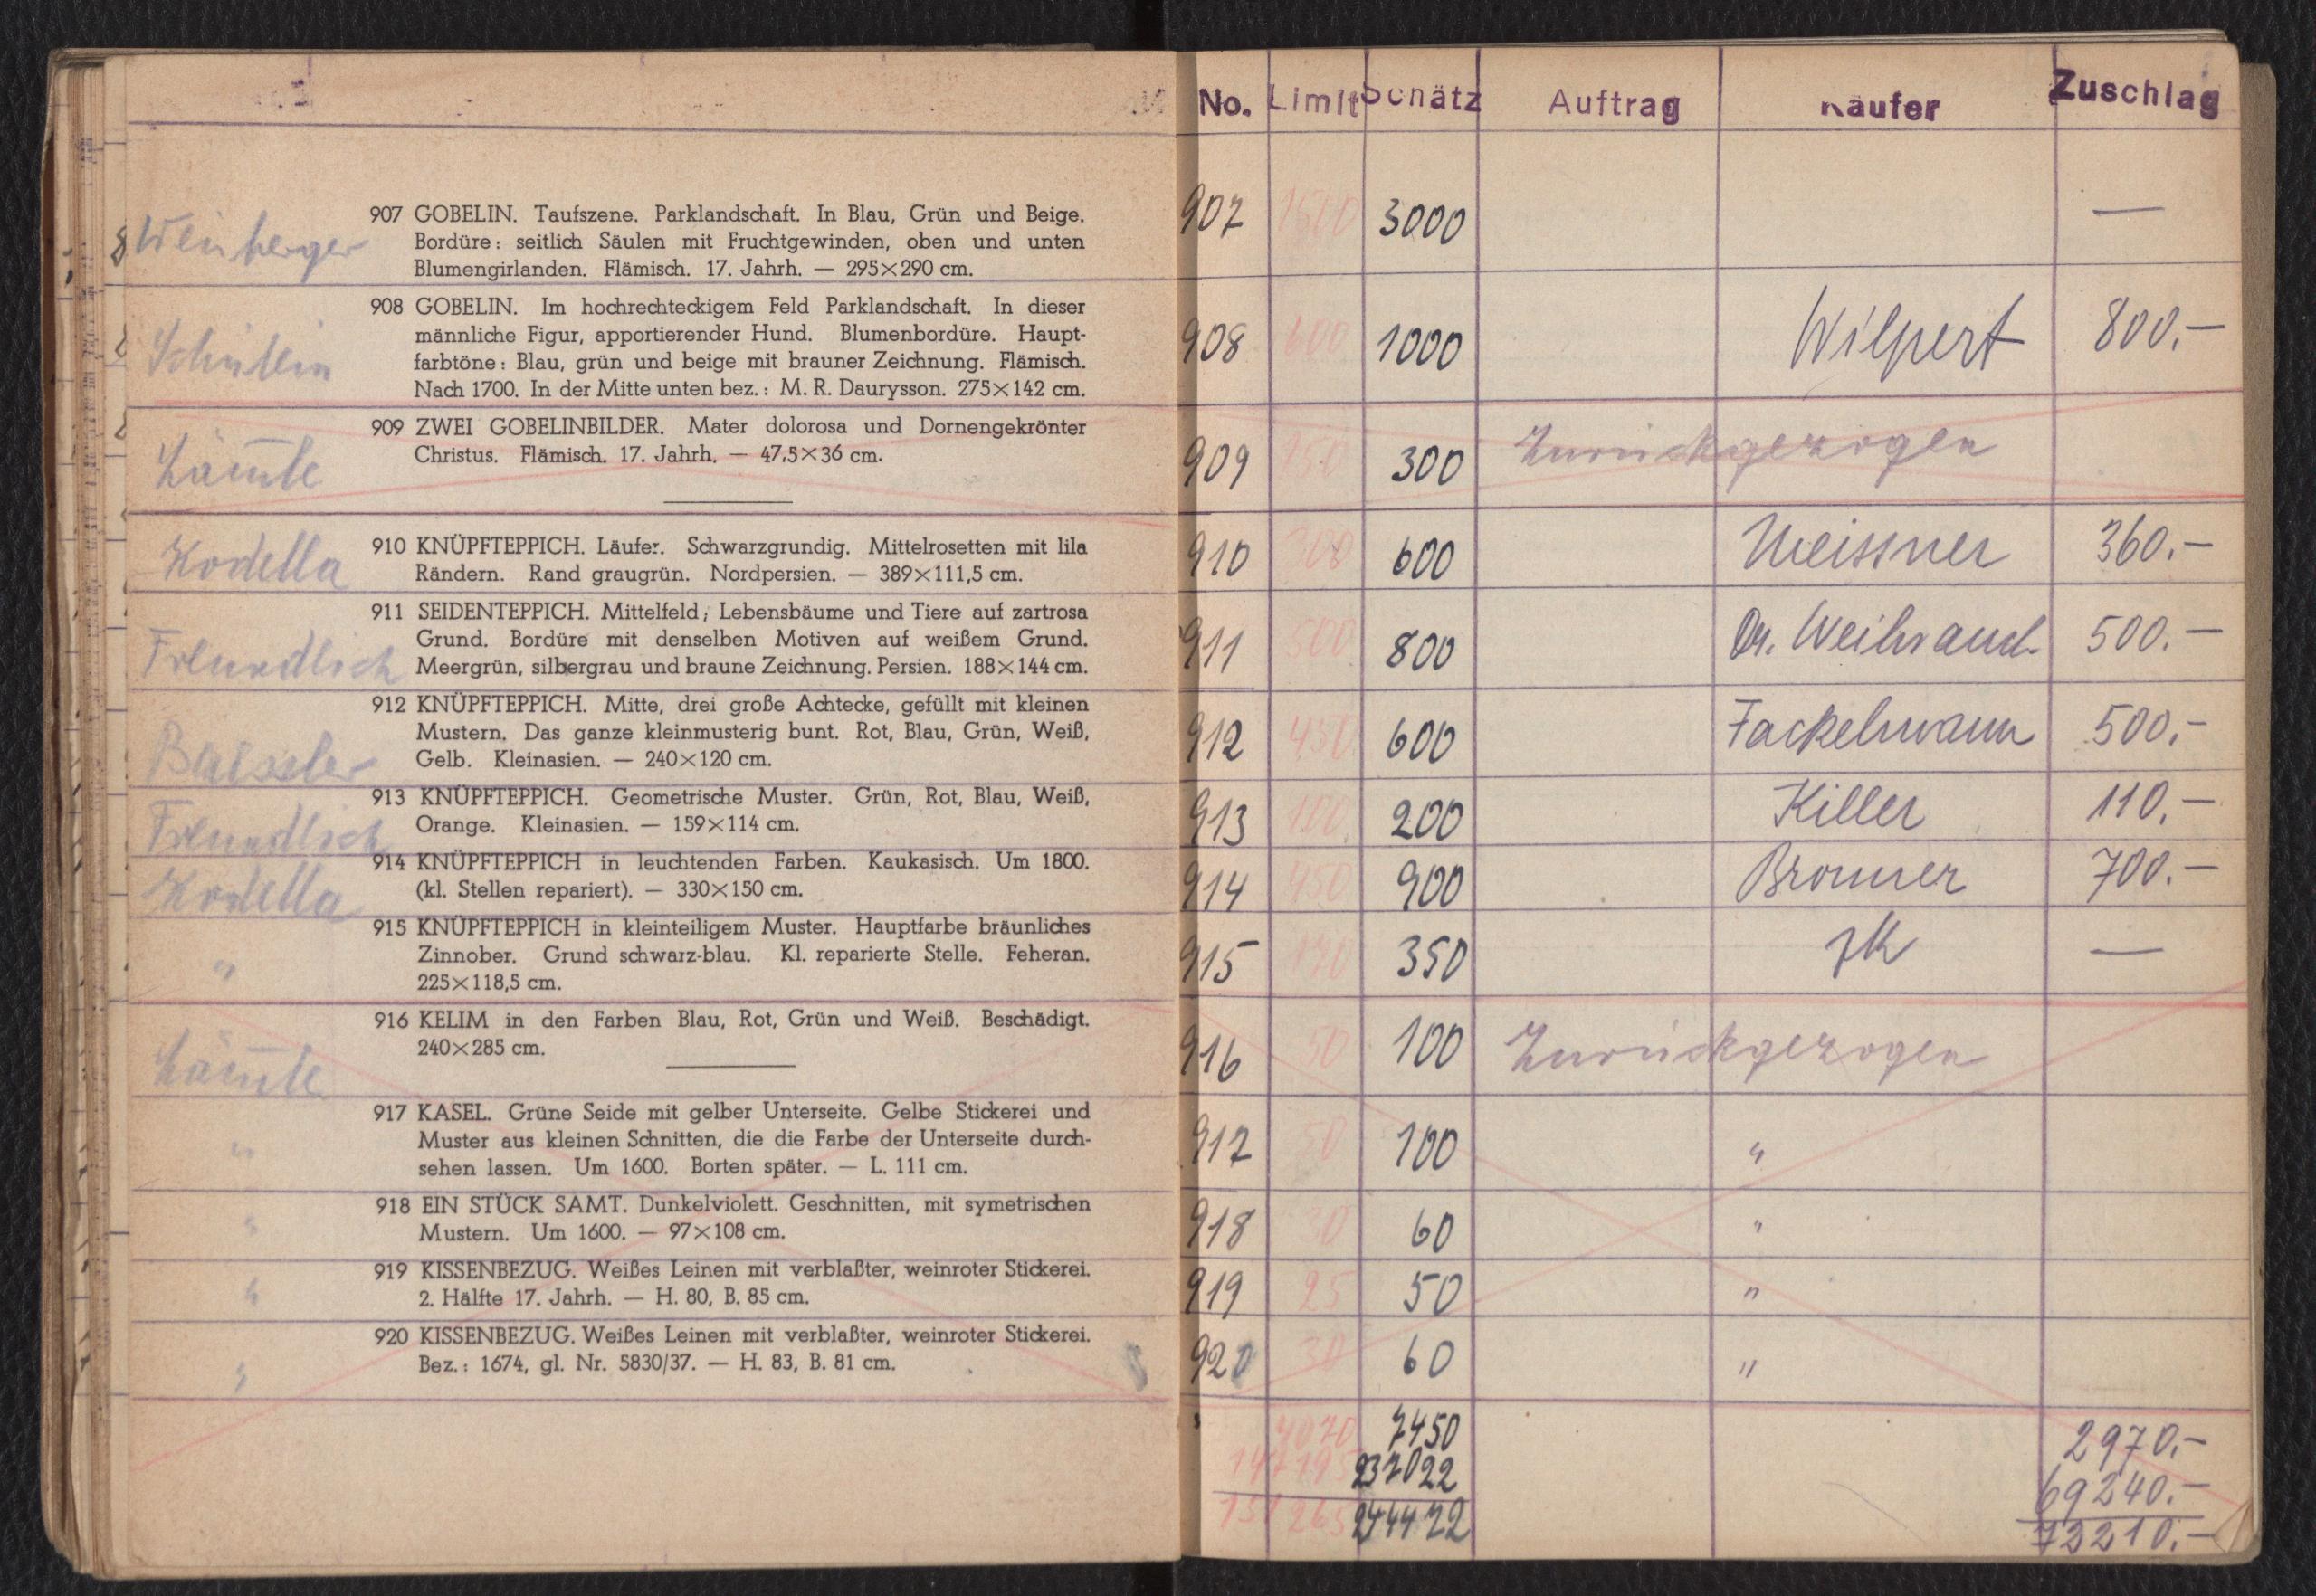 Weinberger
907 GOBELIN. Taufszene. Parklandschaft. In Blau, Grün und Beige.
Bordüre: seitlich Säulen mit Fruchtgewinden, oben und unten
Blumengirlanden. Flämisch. 17. Jahrh. — 295×290 cm.
908 GOBELIN. Im hochrechteckigem Feld Parklandschaft. In dieser
männliche Figur, apportierender Hund. Blumenbordüre. Haupt-
farbtöne: Blau, grün und beige mit brauner Zeichnung. Flämisch.
Nach 1700. In der Mitte unten bez.: M. R. Daurysson. 275×142 cm.
909 ZWEI GOBELINBILDER. Mater dolorosa und Dornengekrönter
Christus. Flämisch. 17. Jahrh. — 47,5×36 cm.
Kodella
910 KNÜPFTEPPICH. Läufer. Schwarzgrundig. Mittelrosetten mit lila
Rändern. Rand graugrün. Nordpersien. — 389×111,5 cm.
Freundlich
911 SEIDENTEPPICH. Mittelfeld; Lebensbäume und Tiere auf zartrosa
Grund. Bordüre mit denselben Motiven auf weißem Grund.
Meergrün, silbergrau und braune Zeichnung. Persien. 188×144 cm.
912 KNÜPFTEPPICH. Mitte, drei große Achtecke, gefüllt mit kleinen
Mustern. Das ganze kleinmusterig bunt. Rot, Blau, Grün, Weiß,
Gelb. Kleinasien. — 240×120 cm.
Freundlich
913 KNÜPFTEPPICH. Geometrische Muster. Grün, Rot, Blau, Weiß,
Orange. Kleinasien. — 159×114 cm.
Kodella
914 KNÜPFTEPPICH in leuchtenden Farben. Kaukasisch. Um 1800.
(kl. Stellen repariert). — 330×150 cm.
"
915 KNÜPFTEPPICH in kleinteiligem Muster. Hauptfarbe bräunliches
Zinnober. Grund schwarz-blau. Kl. reparierte Stelle. Feheran.
225×118,5 cm.
916 KELIM in den Farben Blau, Rot, Grün und Weiß. Beschädigt.
240×285 cm.
"
917 KASEL. Grüne Seide mit gelber Unterseite. Gelbe Stickerei und
Muster aus kleinen Schnitten, die die Farbe der Unterseite durch-
sehen lassen. Um 1600. Borten später. — L. 111 cm.
"
918 EIN STÜCK SAMT. Dunkelviolett. Geschnitten, mit symetrischen
Mustern. Um 1600. — 97×108 cm.
"
919 KISSENBEZUG. Weißes Leinen mit verblaßter, weinroter Stickerei.
2. Hälfte 17. Jahrh. — H. 80, B. 85 cm.
"
920 KISSENBEZUG. Weißes Leinen mit verblaßter, weinroter Stickerei.
Bez.: 1674, gl. Nr. 5830/37. — H. 83, B. 81 cm.
No. Limit Schätz Auftrag Käufer Zuschlag
907 1500 3000 —
908 600 1000 Wilpert 800.—
909 150 300 Zurückgezogen
910 300 600 Meissner 360.—
911 500 800 Dr. Weihrauch 500.—
912 450 600 Fackelmann 500.—
913 100 200 Killer 110.—
914 450 900 Bronner 700.—
915 170 350 —
916 50 100 Zurückgezogen
917 50 100 "
918 30 60 "
919 25 50 "
920 30 60 "
7450 2970.—
237022 69240.—
244472 73210.—